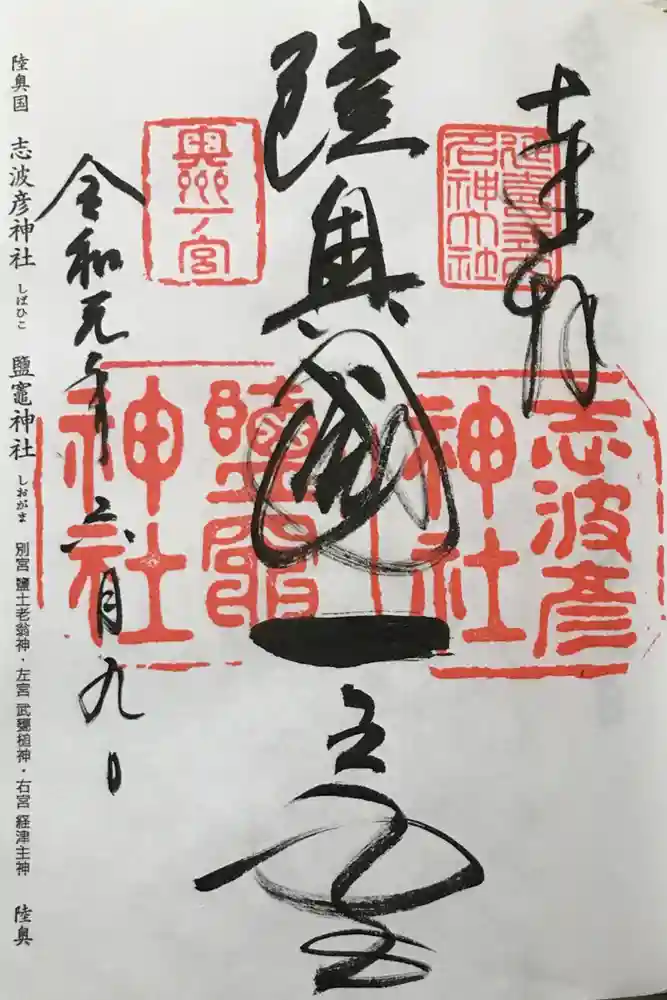 奉拝
延喜式内
名神大社
陸奥國一之宮
奥州一宮
志波彦
神社
鹽竈
神社
令和元年六月九日
陸奥国 志波彦神社 しばひこ 鹽竈神社 しおがま 別宮 鹽土老翁神・左宮 武甕槌神・右宮 経津主神 陸奥